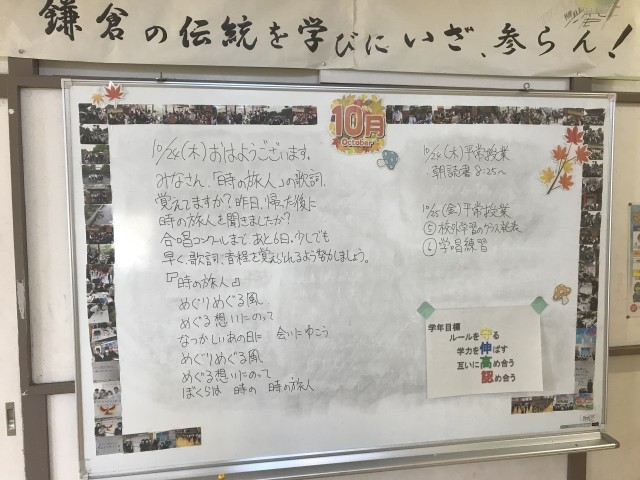 鎌倉の伝統を学びにいざ、参らん!
10月
October
10/24(木)おはようございます。
みなさん、「時の旅人」の歌詞、
覚えてますか?昨日、帰った後に
時の旅人を聞きましたか?
合唱コンクールまで、あと6日。少しでも
早く、歌詞、音程を覚えられるよう努力しましょう。
『時の旅人』
めぐりめぐる風
めぐる想いにのって
なつかしいあの日に 会いにゆこう
めぐりめぐる風
めぐる想いにのって
ぼくらは 時の 時の旅人
10/24(木)平常授業
朝読書 8:25〜
10/25(金)平常授業
⑤校外学習のクラス発表
⑥学唱練習
学年目標
ルールを守る
学力を伸ばす
互いに高め合う
認め合う